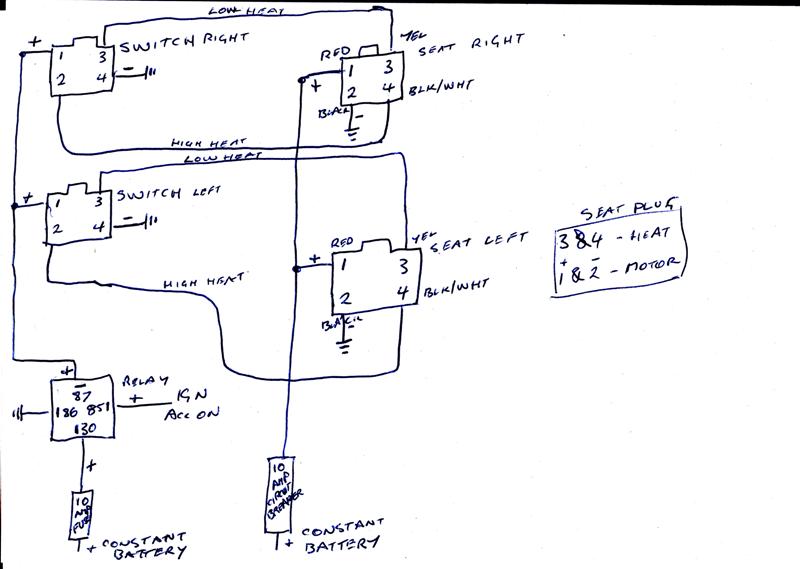 LOW HEAT
+
1 3
2 4
SWITCH RIGHT
-
HIGH HEAT
RED
YEL
SEAT RIGHT
+
1 3
2 4
BLK/WHT
BLACK
-
LOW HEAT
+
1 3
2 4
SWITCH LEFT
-
HIGH HEAT
RED
YEL
SEAT LEFT
+
1 3
2 4
BLK/WHT
BLACK
-
SEAT PLUG
3 & 4 - HEAT
+ -
1 & 2 - MOTOR
+
87
186 851
130
RELAY
+
IGN
ACC ON
+
10
AMP
FUSE
+ CONSTANT
BATTERY
10
AMP
CIRCUIT
BREAKER
+ CONSTANT
BATTERY